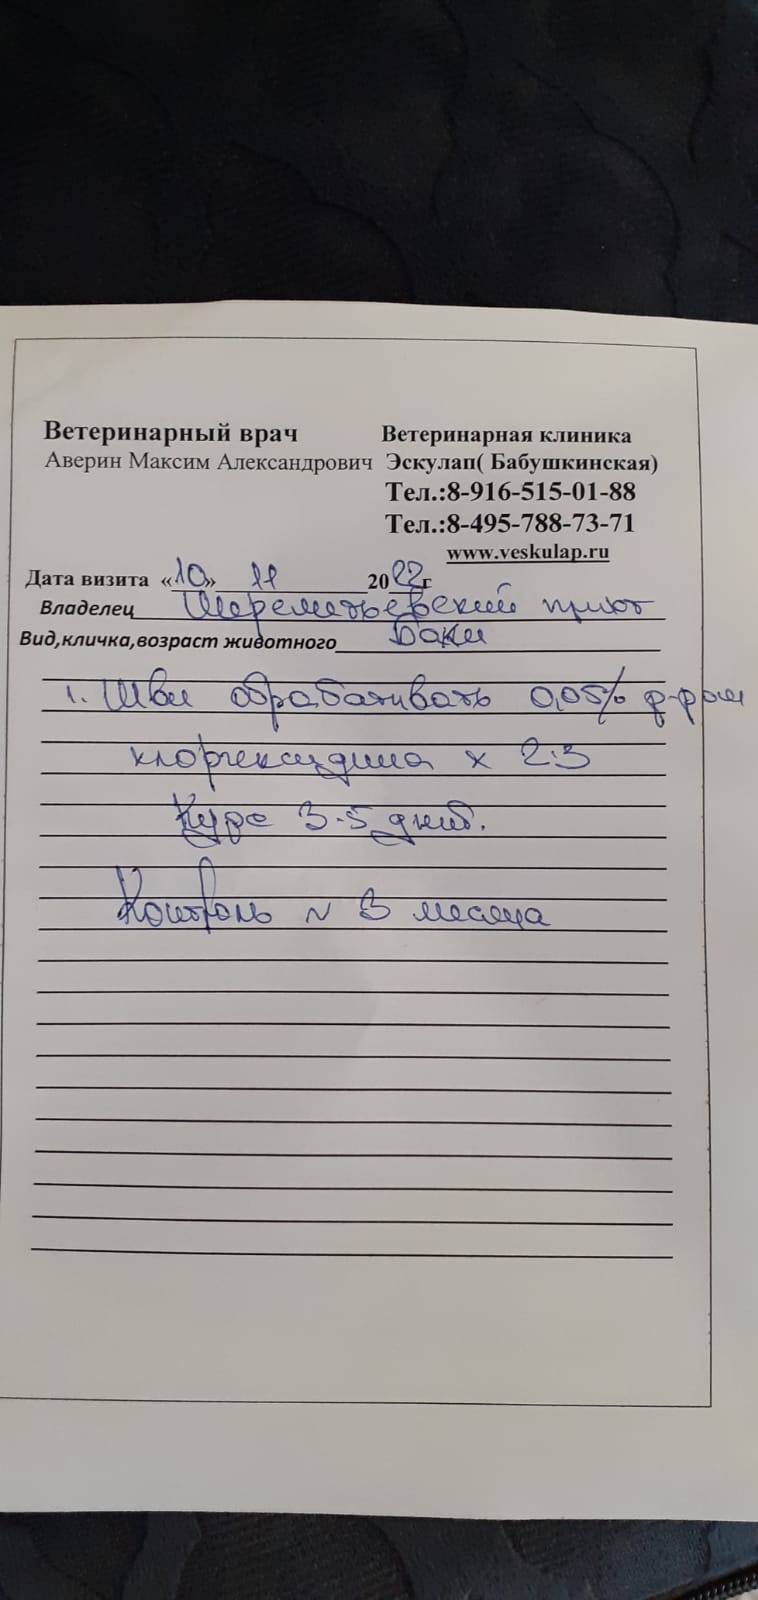 Ветеринарный врач
Аверин Максим Александрович
Ветеринарная клиника
Эскулап( Бабушкинская)
Тел.:8-916-515-01-88
Тел.:8-495-788-73-71
www.veskulap.ru
Дата визита «10» 11 2022г
Владелец Шереметьевский приют
Вид,кличка,возраст животного Баки
1. Швы обрабатывать 0,05% р-ром
хлоргексидина х 2-3
Курс 3-5 дней.
Контроль ~ 3 месяца